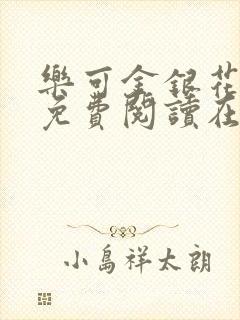 樂可金銀花
免費閱讀在
小島祥太朗